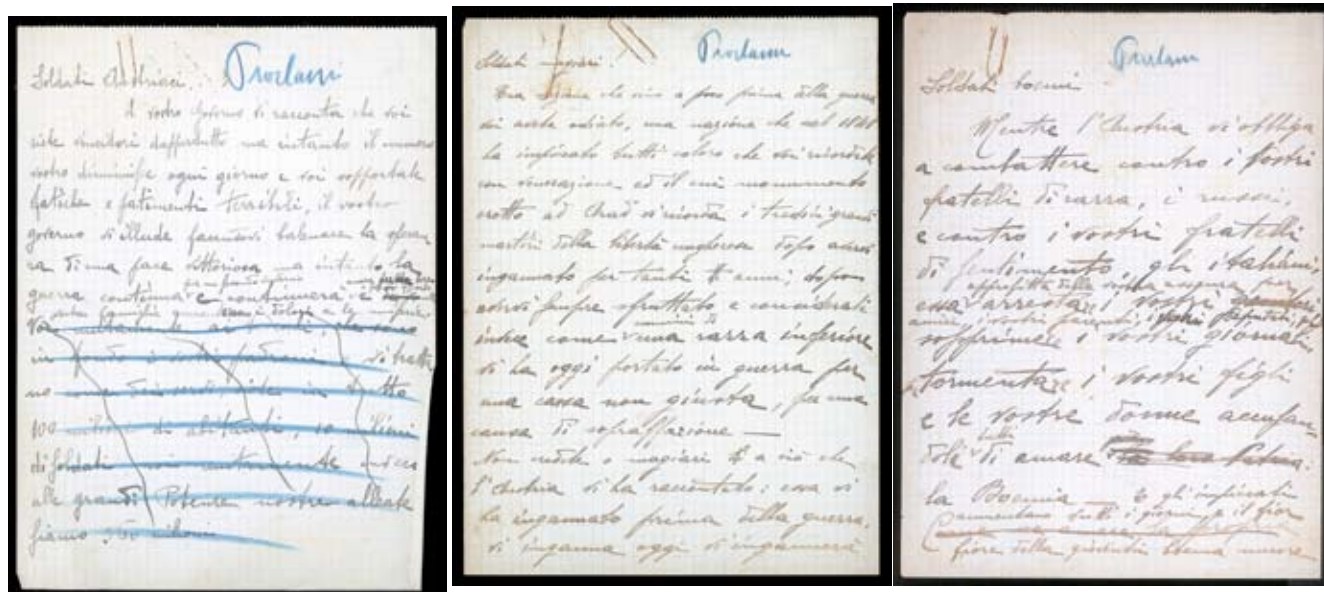 Proclami
Soldati Austriaci.
Il vostro Governo vi racconta che voi
siete vincitori dappertutto ma intanto il numero
vostro diminuisce ogni giorno e voi sopportate
fatiche e patimenti terribili, il vostro
governo vi illude facendovi balenare la speran
za di una pace vittoriosa ma intanto la
guerra continua e continuerà e
in fondo i vostri padroni vi tratta
no come dei servi, siete in tutto
100 milioni di abitanti, 10 milioni
di soldati noi unitamente
alle grandi Potenze nostre alleate
siamo 350 milioni
Proclami
Soldati magiari.
Una nazione che sino a poco prima della guerra
voi avete odiato, una nazione che nel 1848
ha impiccato tutti coloro che voi ricordate
con venerazione ed il cui monumento
eretto ad Arad vi ricorda i tredici grandi
martiri della libertà ungherese dopo avervi
ingannato per tanti anni, dopo
avervi sempre sfruttato e considerati
come una razza inferiore
vi ha oggi portato in guerra per
una causa non giusta, per una
causa di sopraffazione —
Non credete o magiari a ciò che
l'Austria vi ha raccontato: essa vi
ha ingannato prima della guerra,
vi inganna oggi vi ingannerà
Proclami
Soldati boemi
Mentre l'Austria vi obbliga
a combattere contro i vostri
fratelli di razza, i russi,
e contro i vostri fratelli
di sentimento, gli italiani,
approfitta della vostra assenza per
essa arresta i vostri
amici, i vostri parenti, i vostri deputati,
sopprime i vostri giornali,
tormenta i vostri figli
e le vostre donne accusan
dole di amare la loro Patria:
la Boemia — e gli impiccati
aumentano tutti i giorni e il fior
fiore della gioventù boema muore